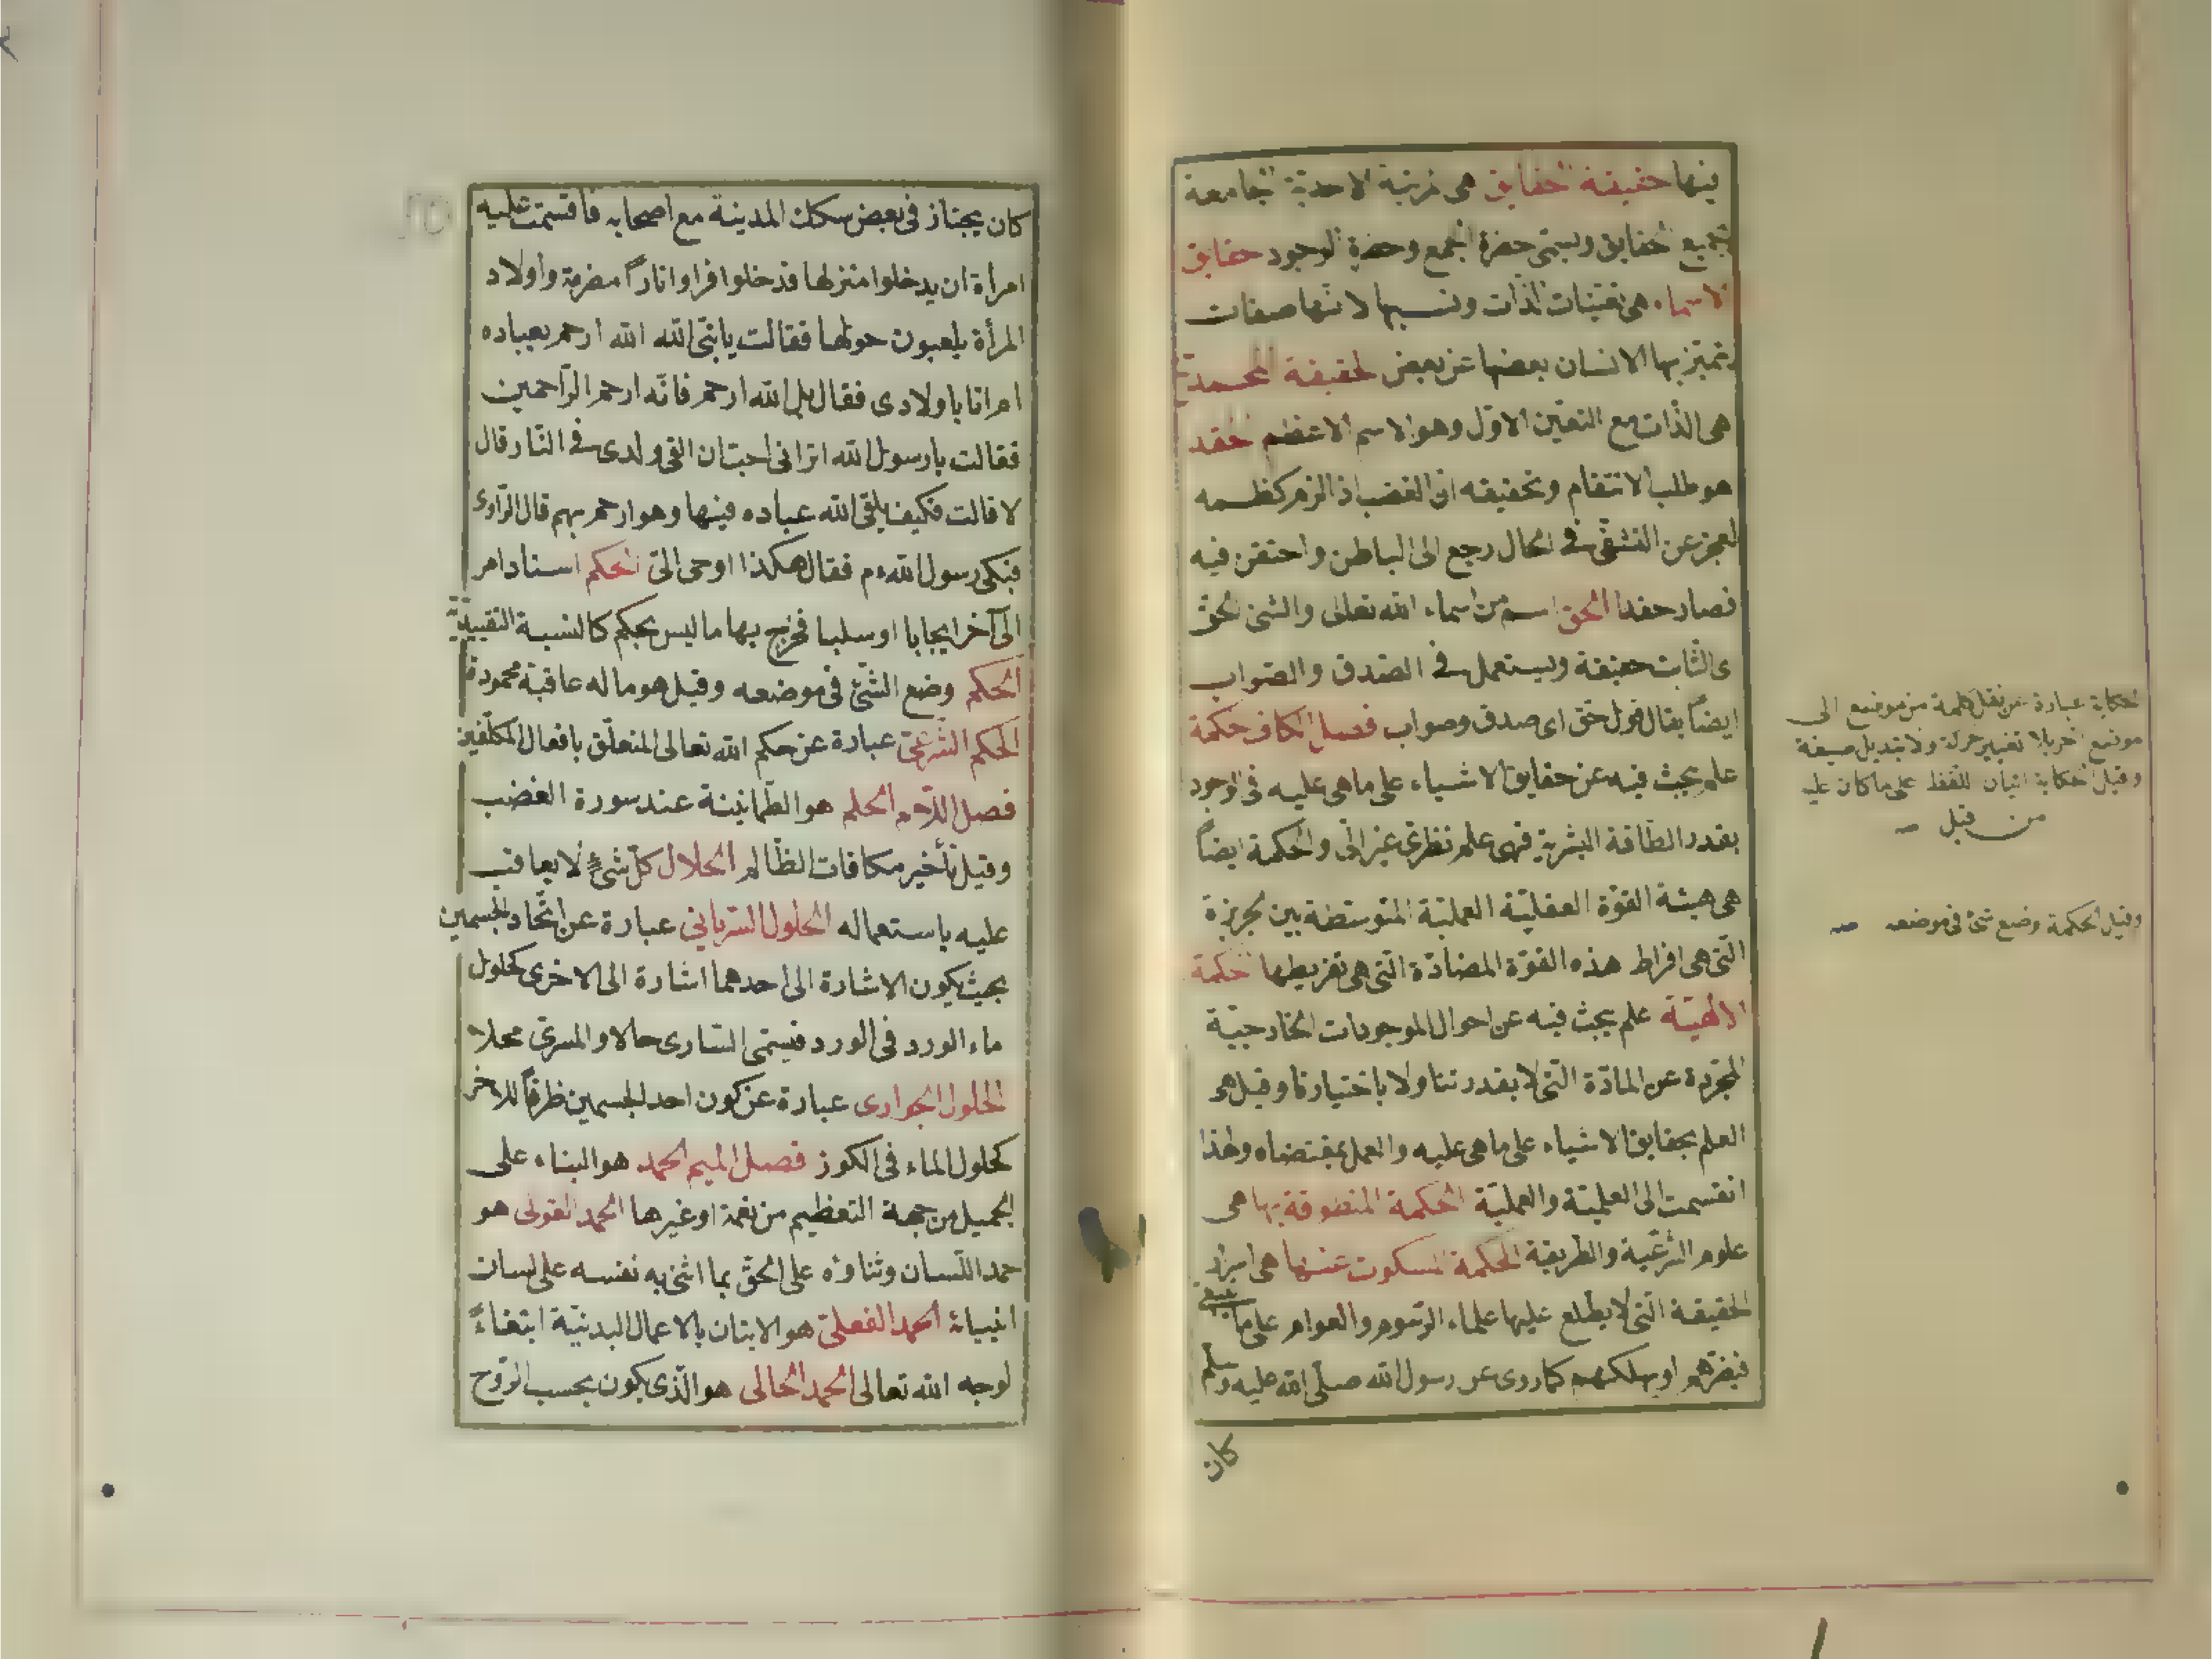 فيها حقيقة الحقايق هى مرتبة الاحدية الجامعة
بجميع الحقايق ويسمى حضرة الجمع وحضرة الوجود حقايق
الاسماء هى تعينات الذات ونسبها لانها صفات
يتميز بها الانسان بعضها عن بعض الحقيقة المحمدية
هى الذات مع التعين الاول وهو الاسم الاعظم الحقد
هو طلب الانتقام وتحقيقه ان الغضب اذا لزم كظمه
لعجز عن التشفى فى الحال رجع الى الباطن واحتقن فيه
فصار حقدا الحق اسم من اسماء الله تعالى والشئ الحق
اى الثابت حقيقة ويستعمل فى الصدق والصواب
ايضاً يقال قول حق اى صدق وصواب فصل الكاف الحكمة
علم يبحث فيه عن حقايق الاشياء على ماهى عليه فى الوجود
بقدر الطاقة البشرية فهى علم نظرى غير الى والحكمة ايضاً
هى هيئة القوة العقلية العملية المتوسطة بين الجربزة
التى هى افراط هذه القوة المضادة التى هى تفريطها الحكمة
الالهية علم يبحث فيه عن احوال الموجودات الخارجية
المجردة عن المادة التى لا بقدرتنا ولا باختيارنا وقيل هى
العلم بحقايق الاشياء على ماهى عليه والعمل بمقتضاه ولهذا
انقسمت الى العلمية والعملية الحكمة المنطوقة بها هى
علوم الشرعية والطريقة الحكمة المسكوت عنها هى اسرار
الحقيقة التى لا يطلع عليها علماء الرسوم والعوام على ما ينبغى
فيضرهم او يهلكهم كما روى عن رسول الله صلى الله عليه وسلم
كان
الحكاية عبارة عن نقل كلمة من موضع الى
موضع اخر بلا تغيير حركة ولا تبديل صيغة
وقيل الحكاية اتيان اللفظ على ما كان عليه
من قبل
وقيل الحكمة وضع شئ فى موضعه
كان يجتاز فى بعض سكك المدينة مع اصحابه فاقسمت عليه
امرأة ان يدخلوا منزلها فدخلوا فراوا ناراً مضرمة واولاد
المرأة يلعبون حولها فقالت يا نبى الله الله ارحم بعباده
ام انا باولادى فقال بل الله ارحم فانه ارحم الراحمين
فقالت يارسول الله اترانى احب ان القى ولدى فى النار قال
لا قالت فكيف يلقى الله عباده فيها وهو ارحم بهم قال الراوى
فبكى رسول الله م فقال هكذا اوحى الىّ الحكم اسناد امر
الى آخر ايجابا او سلبا فخرج بها ما ليس بحكم كالنسبة التقييدية
الحكم وضع الشئ فى موضعه وقيل هو ما له عاقبة محمودة
الحكم الشرعى عبارة عن حكم الله تعالى المتعلق بافعال المكلفين
فصل اللام الحلم هو الطمانينة عند سورة الغضب
وقيل تأخير مكافات الظالم الحلال كل شئ لا يعاقب
عليه باستعماله الحلول السريانى عبارة عن اتحاد الجسمين
بحيث يكون الاشارة الى احدهما اشارة الى الاخرى كحلول
ماء الورد فى الورد فيسمى السارى حالا والمسرى محلا
الحلول الجوارى عبارة عن كون احد الجسمين ظرفاً للاخر
كحلول الماء فى الكوز فصل الميم الحمد هو الثناء على
الجميل من جهة التعظيم من نعمة او غيرها الحمد القولى هو
حمد اللسان وثناؤه على الحق بما اثنى به نفسه على لسان
انبيائه الحمد الفعلى هو الاتيان بالاعمال البدنية ابتغاءً
لوجه الله تعالى الحمد الحالى هو الذى يكون بحسب الروح